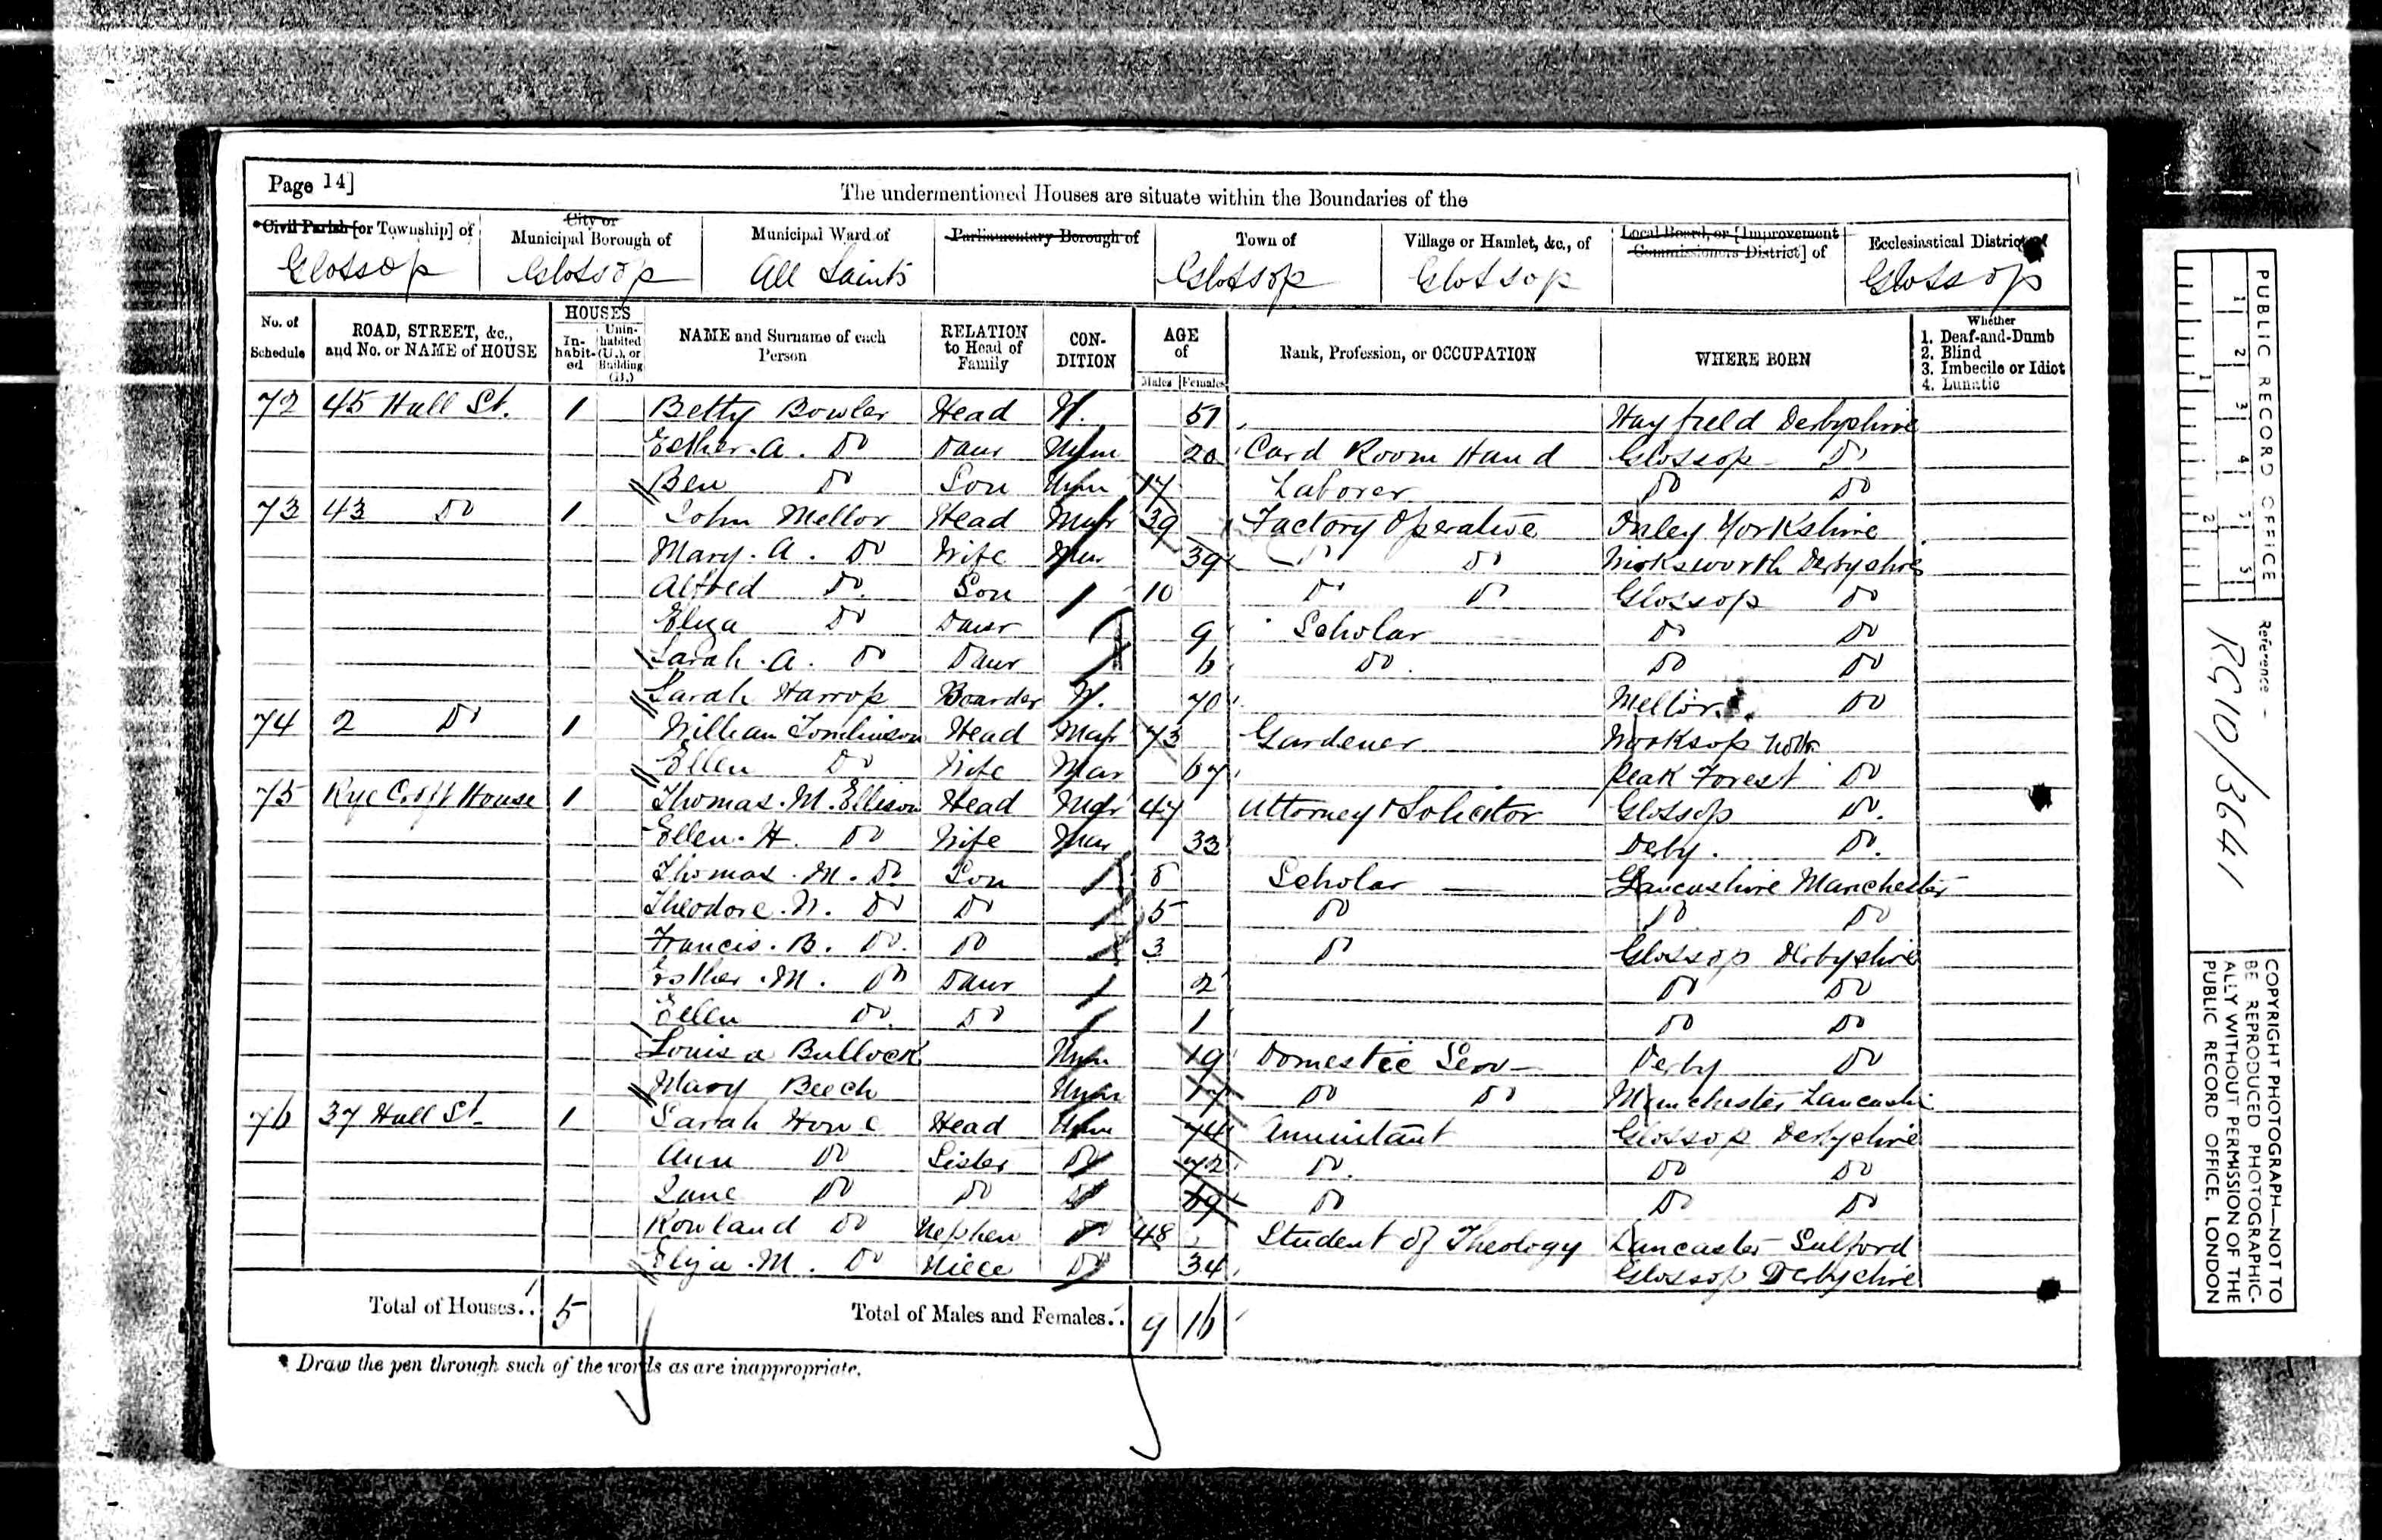 Page 14]
The undermentioned Houses are situate within the Boundaries of the
*Civil Parish [or Township] of
City or Municipal Borough of
Municipal Ward of
Parliamentary Borough of
Town of
Village or Hamlet, &c., of
Local Board, or [Improvement Commissioners District] of
Ecclesiastical District of
Glossop Glossop All Saints Glossop Glossop Glossop
No. of Schedule
ROAD, STREET, &c., and No. or NAME of HOUSE
HOUSES
In-habit-ed
Unin-habited (U.), or Building (B.)
NAME and Surname of each Person
RELATION to Head of Family
CON-DITION
AGE of
Males Females
Rank, Profession, or OCCUPATION
WHERE BORN
Whether
1. Deaf-and-Dumb
2. Blind
3. Imbecile or Idiot
4. Lunatic
72 45 Hall St. 1 Betty Bowler Head W. 51 Hayfield Derbyshire
Esther. A. Do Daur Unm 20 Card Room Hand Glossop Do
Ben Do Son Unm 17 Laborer Do Do
73 43 Do 1 John Mellor Head Mar 39 Factory Operative Yorkshire
Mary. A. Do Wife Mar 39 Do Do Wirksworth Derbyshire
Alfred Do. Son 10 Do Do Glossop Do
Eliza Do Daur 9 Scholar Do Do
Sarah. A. Do Daur 6 Do. Do Do
Sarah Harrop Boarder W. 70 Mellor. Do
74 2 Do 1 William Tomlinson Head Mar 73 Gardener Worksop Notts
Ellen Do Wife Mar 67 Peak Forest Do
75 Rye Croft House 1 Thomas. M. Ellison Head Mar 47 Attorney & Solicitor Glossop Do.
Ellen. H. Do Wife Mar 33 Derby. Do.
Thomas. M. Do. Son 8 Scholar Lancashire Manchester
Theodore. Do Do 5 Do Do Do
Francis. B. Do. Do 3 Do Glossop Derbyshire
Esther. M. Do Daur 2 Do Do
Ellen Do. Do 1 Do Do
Louisa Bullock Unm 19 Domestic Serv Derby Do
Mary Beech Unm 17 Do Do Manchester Lancashi
76 37 Hall St. 1 Sarah Howe Head Unm 74 Annuitant Glossop Derbyshire
Ann Do Sister Do 72 Do. Do Do
Jane Do Do Do 69 Do Do Do
Rowland Do Nephew Do 48 Student of Theology Lancaster Salford
Eliza. M. Do Niece Do 34 Glossop Derbyshire
Total of Houses.. 5 Total of Males and Females.. 9 16
* Draw the pen through such of the words as are inappropriate.
PUBLIC RECORD OFFICE
1 2 3 4 5
1 2
Reference -
RG10/3641
COPYRIGHT PHOTOGRAPH—NOT TO
BE REPRODUCED PHOTOGRAPHIC-
ALLY WITHOUT PERMISSION OF THE
PUBLIC RECORD OFFICE, LONDON